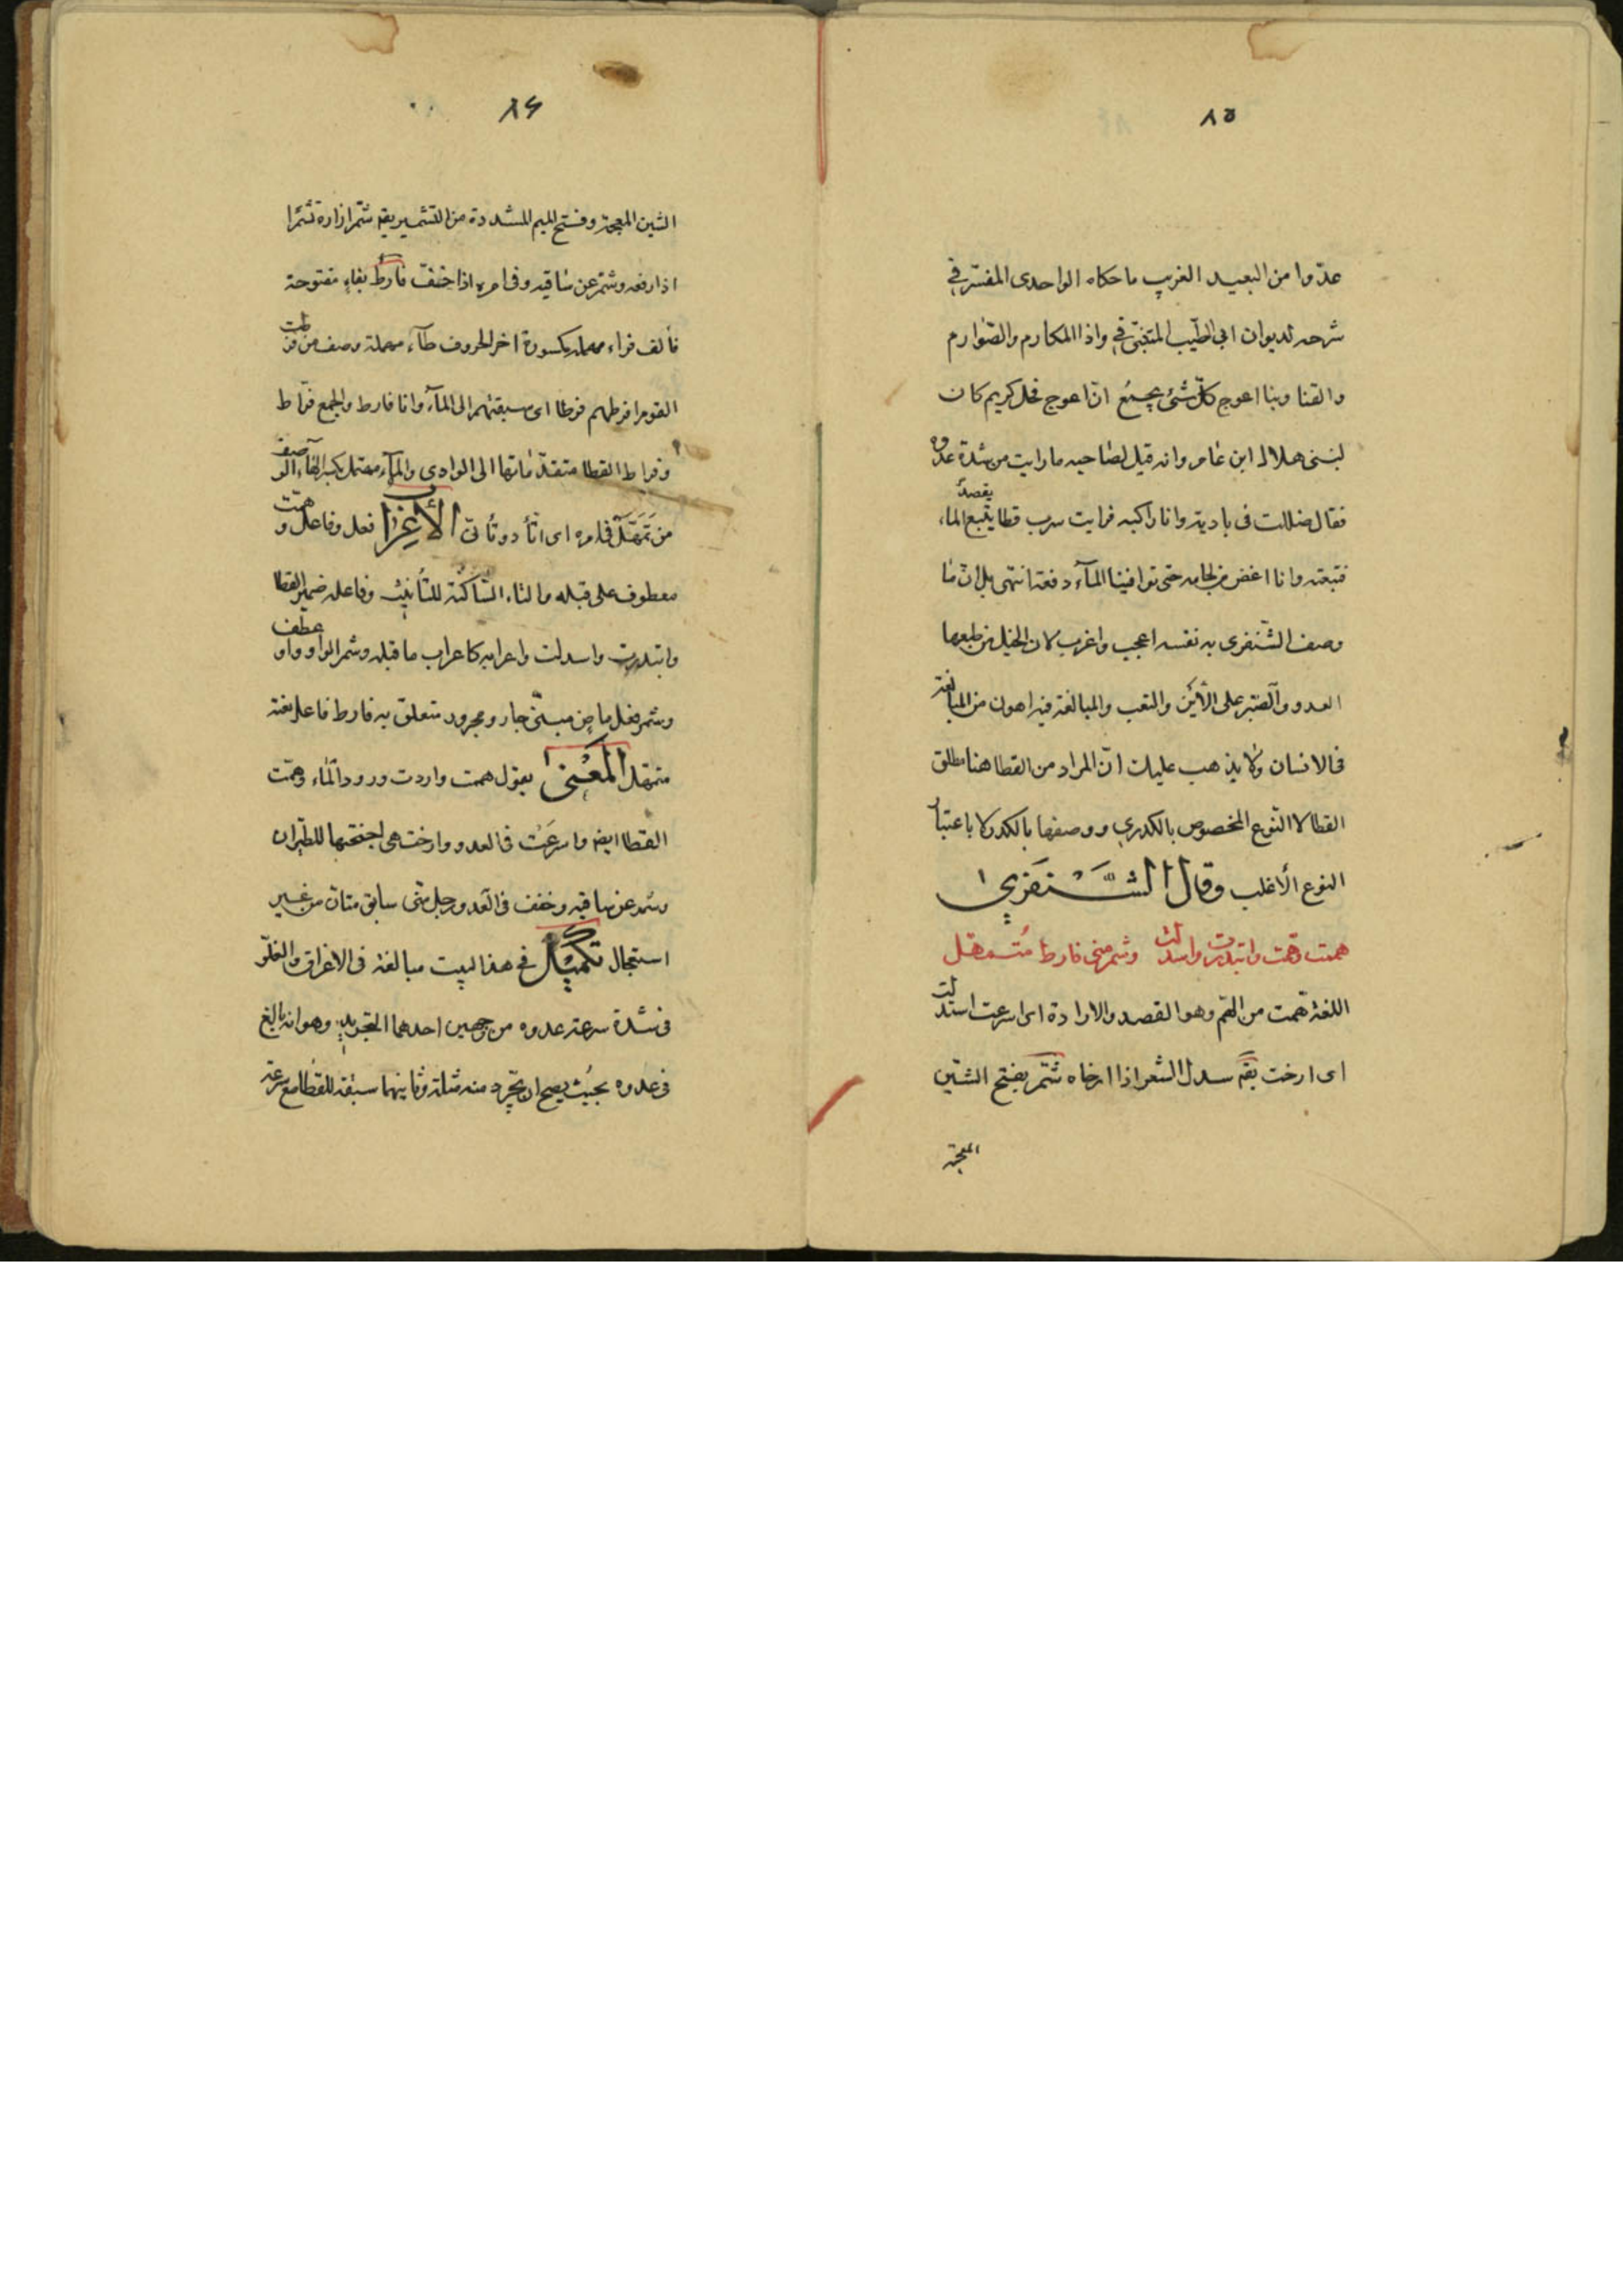 ٨٥
عدّوا من البعيد الغريب ما حكاه الواحدى المفسّر في
شرحه لديوان ابي الطيّب المتنبّي في واذا المكارم والصّوارم
والقنا وبنا اعوج كلّ شئ يجمع انّ اعوج فحل كريم كان
لبنى هلال ابن عامر وانه قيل لصاحبه ما رايت من شدة عدوه
فقال ضللت فى بادية وانا راكبه فرايت سرب قطا يقصد الماء
فتبعته وانا اغض من لجامه حتى توافينا المآء دفعة انتهى بل انّ ما
وصف الشّنفرى به نفسه اعجب واغرب لان الخيل من طبعها
العدو والصّبر على الأين والتعب والمبالغة فيه اهون من المبالغة
فى الانسان ولا يذهب عليك انّ المراد من القطا هنا مطلق
القطا لا النوع المخصوص بالكدرى ووصفها بالكدر لا باعتبار
النوع الأغلب وقال الشَّنفرى
همت وهمّت وابتدرت واسدلت وشمر منى فارط مُتمهّل
اللغة همّت من الهّم وهو القصد والارادة اى اسرعت اسدلت
اى ارخت يقه سدل الشعر اذا ارخاه شمّر بفتح الشّين
المعجمة
٨٦
الشين المعجمة وفتح الميم المشددة من التشمير يقه شمّر ازاره تشمّرا
اذا رفعه وشمّر عن ساقيه وفى امره اذا خفّف فارط بفاء مفتوحة
فألف فراء مهملة مكسورة اخر الحروف طآء مهملة وصف من فرطت
القوم افرطهم فرطا اى سبقتهم الى المآء وانا فارط والجمع فرّاط
وفراط القطا متقدّماتها الى الوادى والمآء متمهل بكسر الهآء الوصف
من تَمَهَّلَ فى امره اى اتّأد وتأنّى الأعراب همّت فعل وفاعل و
معطوف على قبله والتاء السّاكنة للتّأنيث وفاعله ضمير القطا
وابتدرت واسدلت واعرابه كاعراب ما قبله وشمر الواو واو عطف
وشمر فعل ماض مبنّى جار ومجرور متعلق به فارط فاعله نعته
متمهّل المَعْنى يقول همت واردت ورود المّاء وهمّت
القطا ايضه واسرعَت فى العدو وارخت هى اجنحتها للطّيران
وشمر عن ساقيه وخفف فى العدو رجل منى سابق متأن من غير
استعجال تكميل فى هذا البيت مبالغة فى الاغراق والغلوّ
فى شدة سرعة عدوه من وجهين احدهما التجريد وهو انه بالغ
فى عدوه بحيث يصح ان يجّرد منه مثله وثانيهما سبقه للقطا مع سرعة